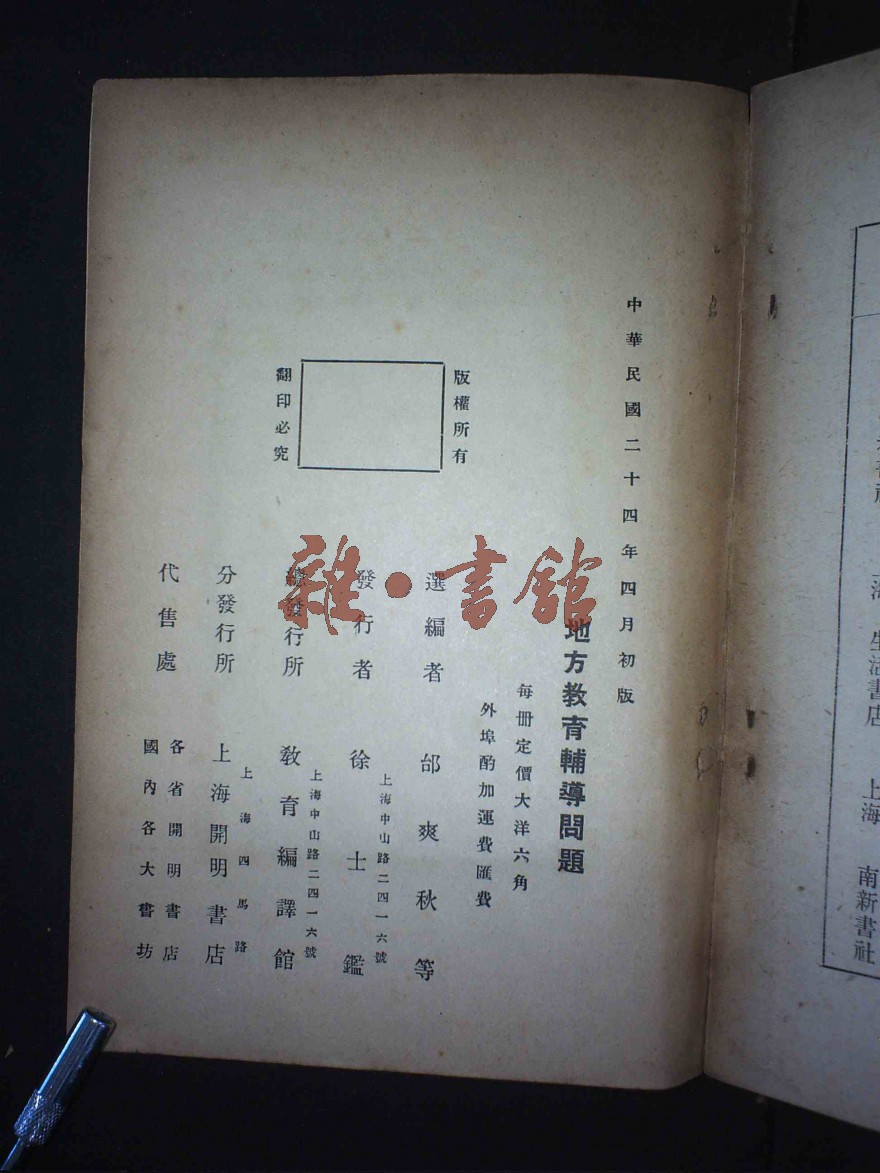 中華民國二十四年四月初版
地方教育輔導問題
每册定價大洋六角
外埠酌加運費匯費
版權所有
翻印必究
選編者 邰爽秋等
上海中山路二四一六號
發行者 徐士鑑
上海中山路二四一六號
總發行所 教育編譯館
上海四馬路
分發行所 上海開明書店
代售處
各省開明書店
國內各大書坊
雜·書館
生活書店
上海 南新書社